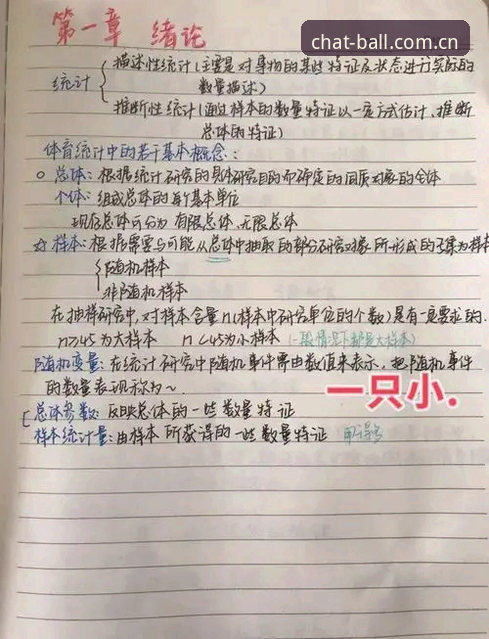 第一章 绪论
chat-ball.com.cn
统计
描述性统计(主要是对事物的某些特征及状态进行实际的
数量描述)
推断性统计(通过样本的数量特征以一定方式估计、推断
总体的特征)
体育统计中的若干基本概念:
总体:根据统计研究的具体研究目的而确定的同质对象的全体
个体:组成总体的每个基本单位
现存总体可分为 有限总体、无限总体
☆样本:根据需要与可能从总体中抽取的部分研究对象所形成的子集为样本
随机样本
非随机样本
在抽样研究中,对样本含量n(样本中研究单位的个数)是有一定要求的.
n≥45为大样本 n<45为小样本(一般情况下都是大样本)
随机变量:在统计研究中随机事件需由数值来表示,把随机事件
的数量表现称为~.
一只小.
总体参数:反映总体的一些数量特征
样本统计量:由样本所获得的一些数量特征